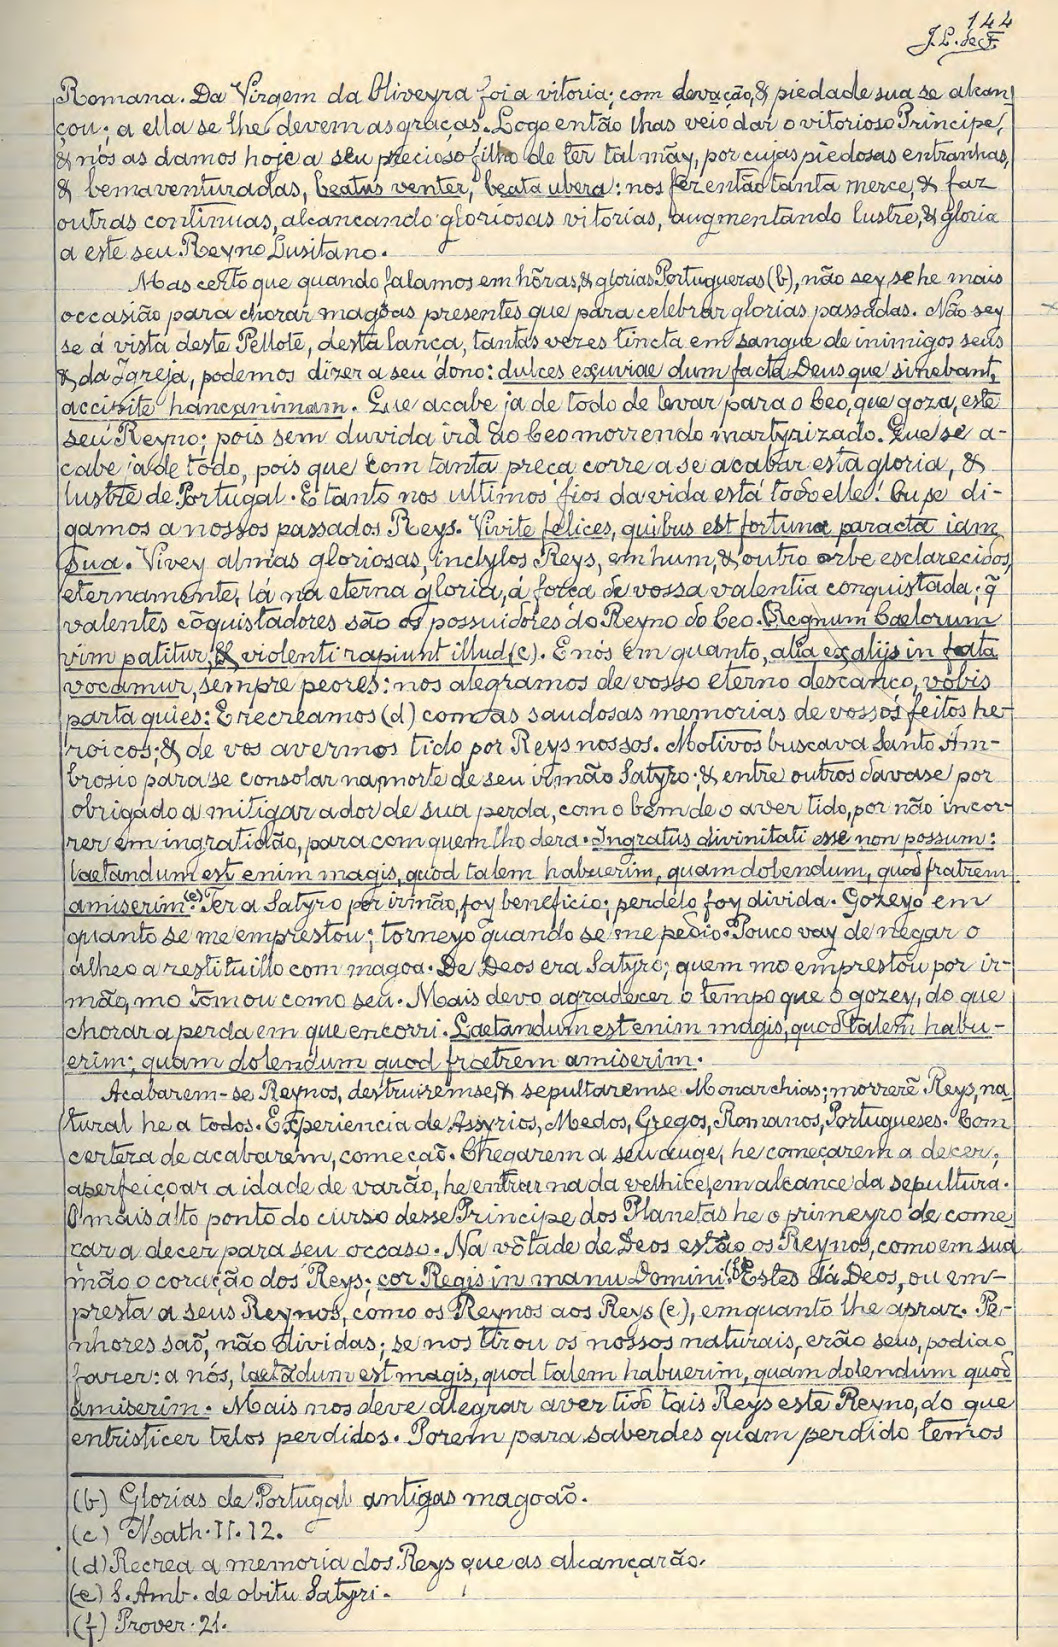 144
J.L. de F.
Romana. Da Virgem da Oliveyra foi a vitoria; com devação, & piedade sua se alcan
çou; a ella se lhe devem as graças. Logo então lhas veio dar o vitorioso Principe,
& nós as damos hoje a seu precioso filho de ter tal mãy, por cujas piedosas entranhas,
& bemaventuradas, beatus venter, beata ubera: nos fez então tanta merce, & faz
outras continuas, alcançando gloriosas vitorias, augmentando lustre, & gloria
a este seu Reyno Lusitano.
Mas certo que quando falamos em hõras, & glorias Portuguezas (b), não sey, se he mais
occasião para chorar magoas presentes que para celebrar glorias passadas. Não sey
se á vista deste Pellote, desta lança, tantas vezes tincta em sangue de inimigos seus
& da Igreja, podemos dizer a seu dono: dulces exuviae dum facta Deus que sinebant,
accipite hanc animam. Que acabe ja de todo de levar para o Ceo, que goza, este
seu Reyno; pois sem duvida irá ao Ceo morrendo martyrizado. Que se a-
cabe ja de todo, pois que com tanta preça corre a se acabar esta gloria, &
lustre de Portugal. E tanto nos ultimos fios da vida está todo elle! Ou se di-
gamos a nossos passados Reys. Vivite felices, quibus est fortuna paracta iam
sua. Vivey almas gloriosas, inclylos Reys, em hum, & outro orbe esclarecidos,
eternamente, lá na eterna gloria, á força de vossa valentia conquistada; q̃
valentes cõquistadores são os possuidores do Reyno do Ceo. Regnum Caelorum
vim patitur, & violenti rapiunt illud (c). E nós em quanto, alia ex alijs in fata
vocamur, sempre peores: nos alegramos de vosso eterno descanço, vobis
parta quies: E recreamos (d) com as saudosas memorias de vossos feitos he-
roicos; & de vos avermos tido por Reys nossos. Motivos buscava Santo Am-
brosio para se consolar na morte de seu irmão Satyro; & entre outros davase por
obrigado a mitigar a dor de sua perda, com o bem de o aver tido, por não incor-
rer em ingratidão, para com quem lho dera. Ingratus divinitati esse non possum:
laetandum est enim magis, quod talem habuerim, quam dolendum, quod fratrem
amiserim (e). Ter a Satyro por irmão, foy beneficio; perdelo foy divida. Gozeyo em
quanto se me emprestou; torneyo quando se me pedio. Pouco vay de negar o
alheo a restituillo com magoa. De Deos era Satyro; quem mo emprestou por ir-
mão, mo tomou como seu. Mais devo agradecer o tempo que o gozey, do que
chorar a perda em que encorri. Laetandum est enim magis, quod talem habu-
erim; quam dolendum quod fratrem amiserim.
Acabarem-se Reynos, destruiremse, & sepultaremse Monarchias; morrerẽ Reys, na
tural he a todos. Experiencia de Assyrios, Medos, Gregos, Romanos, Portugueses. Com
certeza de acabarem, começaõ. Chegarem a seu auge, he começarem a decer;
aperfeiçoar a idade de varão, he entrar na da velhice, em alcance da sepultura.
O mais alto ponto do curso desse Principe dos Planetas he o primeyro de come
çar a decer para seu occaso. Na võtade de Deos estão os Reynos, como em sua
mão o coração dos Reys; cor Regis in manu Domini (f). Estes dá Deos, ou em-
presta a seus Reynos, como os Reynos aos Reys (e), em quanto lhe apraz. Pe-
nhores saõ, não dividas; se nos tirou os nossos naturais, erão seus, podiao
fazer: a nós, laetãdum est magis, quod talem habuerim, quam dolendum quod
amiserim. Mais nos deve alegrar aver tido tais Reys este Reyno, do que
entristicer telos perdidos. Porem para saberdes quam perdido temos
(b) Glorias de Portugal antigas magoaõ.
(c) Math. II. 12.
(d) Recrea a memoria dos Reys que as alcançarão.
(e) S. Amb. de obitu Satyri.
(f) Prover. 21.